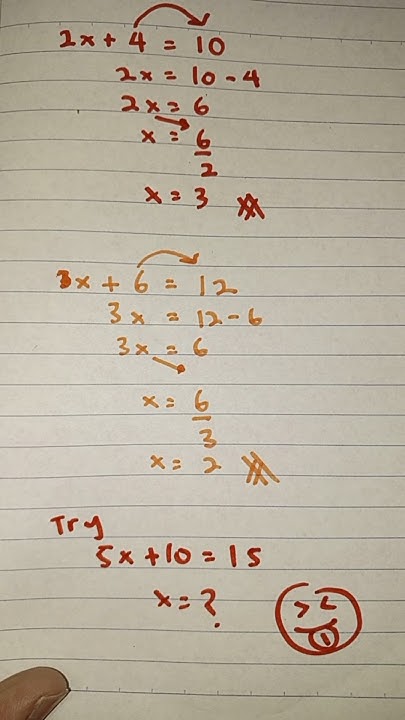 2x + 4 = 10
2x = 10 - 4
2x = 6
x = 6/2
x = 3
3x + 6 = 12
3x = 12 - 6
3x = 6
x = 6/3
x = 2
Try
5x + 10 = 15
x = ?